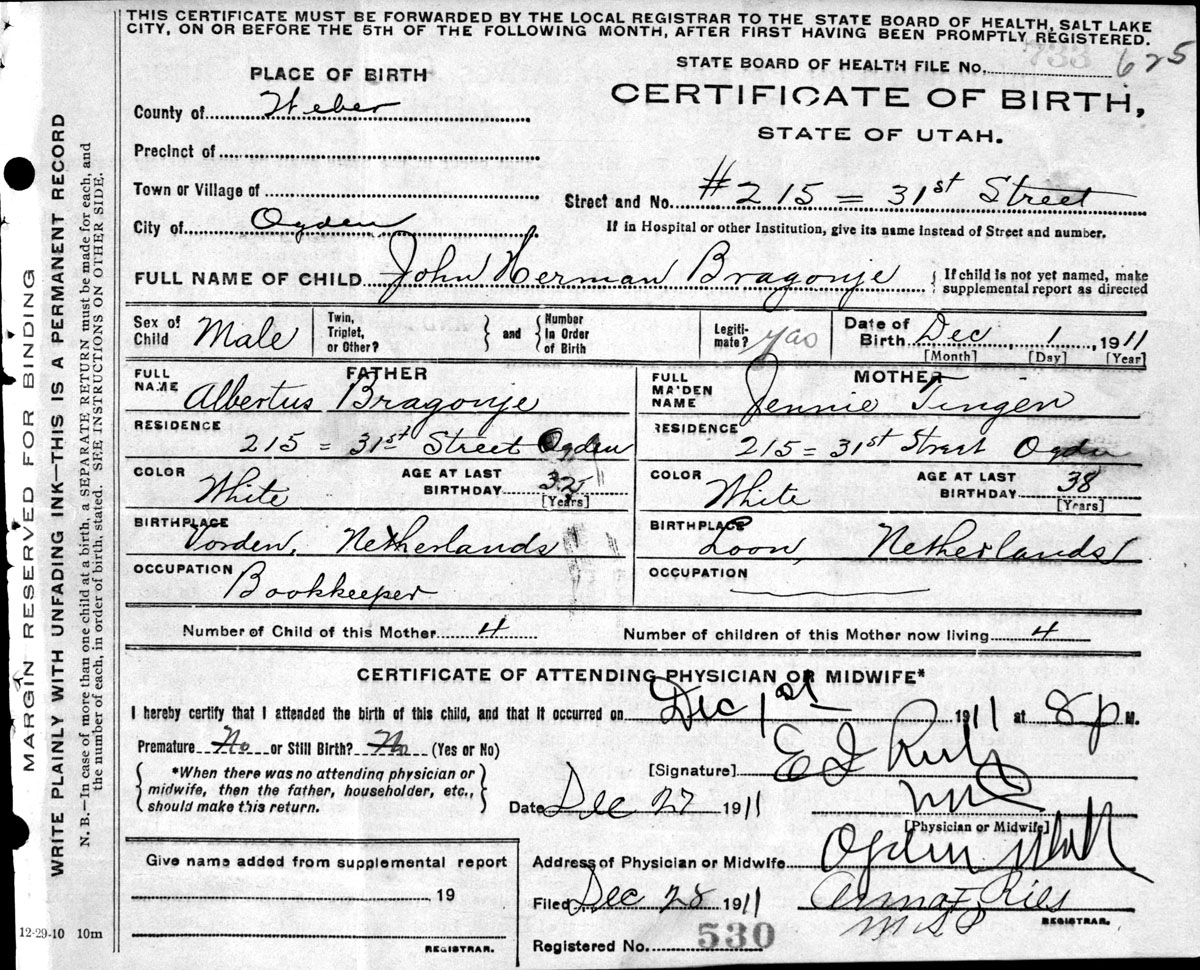 THIS CERTIFICATE MUST BE FORWARDED BY THE LOCAL REGISTRAR TO THE STATE BOARD OF HEALTH, SALT LAKE
CITY, ON OR BEFORE THE 5TH OF THE FOLLOWING MONTH, AFTER FIRST HAVING BEEN PROMPTLY REGISTERED.
733
STATE BOARD OF HEALTH FILE No. 625
CERTIFICATE OF BIRTH,
STATE OF UTAH.
PLACE OF BIRTH
County of Weber
Precinct of
Town or Village of
City of Ogden
Street and No. #215 = 31st Street
If in Hospital or other Institution, give its name instead of Street and number.
FULL NAME OF CHILD John Herman Bragonje { If child is not yet named, make
supplemental report as directed
Sex of Child Male
Twin, Triplet, or Other? } and { Number In Order of Birth
Legiti- mate? yao
Date of Birth Dec 1, 1911
[Month] [Day] [Year]
FATHER
FULL NAME Albertus Bragonje
RESIDENCE 215 = 31st Street Ogden
COLOR White
AGE AT LAST BIRTHDAY 32 [Years]
BIRTHPLACE Vorden, Netherlands
OCCUPATION Bookkeeper
MOTHER
FULL MAIDEN NAME Jennie Tingen
RESIDENCE 215 = 31st Street Ogden
COLOR White
AGE AT LAST BIRTHDAY 38 [Years]
BIRTHPLACE Loon, Netherlands
OCCUPATION
Number of Child of this Mother 4
Number of children of this Mother now living 4
CERTIFICATE OF ATTENDING PHYSICIAN OR MIDWIFE*
I hereby certify that I attended the birth of this child, and that it occurred on Dec 1st 1911 at 8 P M.
Premature No or Still Birth? No (Yes or No)
{ *When there was no attending physician or
midwife, then the father, householder, etc.,
should make this return. }
[Signature] E I
MD
[Physician or Midwife]
Date Dec 27 1911
Address of Physician or Midwife Ogden Utah
Give name added from supplemental report
19
REGISTRAR.
Filed Dec 28 1911 Anna F Ries
REGISTRAR.
Registered No. 530
12-29-10 10m
MARGIN RESERVED FOR BINDING
WRITE PLAINLY WITH UNFADING INK—THIS IS A PERMANENT RECORD
N. B.—In case of more than one child at a birth, a SEPARATE RETURN must be made for each, and
the number of each, in order of birth, stated. SEE INSTRUCTIONS ON OTHER SIDE.